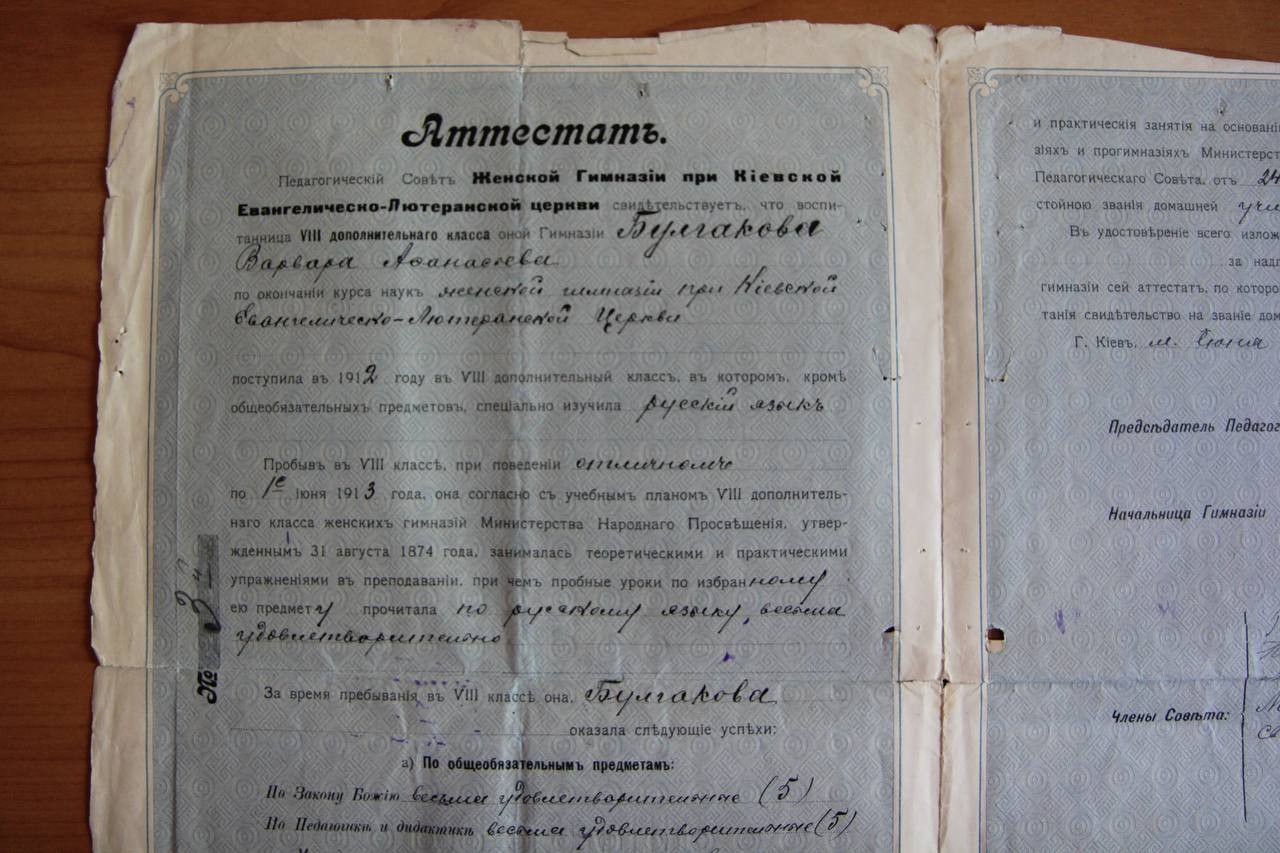 Аттестатъ.
Педагогическій Совѣтъ Женской Гимназіи при Кіевской
Евангелическо-Лютеранской церкви свидѣтельствуетъ, что воспи-
танница VIII дополнительнаго класса оной Гимназіи Булгакова
Варвара Аѳанасіева
по окончаніи курса наукъ женской гимназіи при Кіевской
Евангелическо-Лютеранской Церкви
поступила въ 1912 году въ VIII дополнительный классъ, въ которомъ, кромѣ
общеобязательныхъ предметовъ, спеціально изучила русскій языкъ
Пробывъ въ VIII классѣ, при поведеніи отличномъ
по 1е Іюня 1913 года, она согласно съ учебнымъ планомъ VIII дополнитель-
наго класса женскихъ гимназій Министерства Народнаго Просвѣщенія, утвер-
жденнымъ 31 августа 1874 года, занималась теоретическими и практическими
упражненіями въ преподаваніи, при чемъ пробные уроки по избранному
ею предмету прочитала по русскому языку, весьма
удовлетворительно
№ 3
За время пребыванія въ VIII классѣ она, Булгакова
оказала слѣдующіе успѣхи:
а) По общеобязательнымъ предметамъ:
По Закону Божію весьма удовлетворительные (5)
По Педагогикѣ и дидактикѣ весьма удовлетворительные (5)
и практическія занятія на основані
зіяхъ и прогимназіяхъ Министерст
Педагогическаго Совѣта, отъ 24
стойною званія домашней учи
Въ удостовѣреніе всего излож
за надл
гимназіи сей аттестатъ, по которо
танія свидѣтельство на званіе дом
Г. Кіевъ, Іюня
Предсѣдатель Педагог
Начальница Гимназіи
Члены Совѣта: